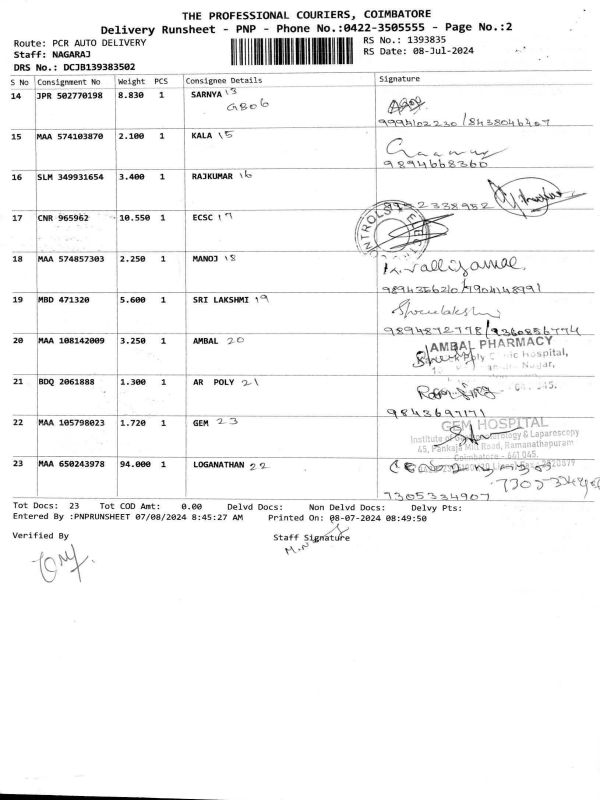 THE PROFESSIONAL COURIERS, COIMBATORE
Delivery Runsheet - PNP - Phone No.:0422-3505555 - Page No.:2
Route: PCR AUTO DELIVERY
RS No.: 1393835
Staff: NAGARAJ
RS Date: 08-Jul-2024
DRS No.: DCJB139383502
S No Consignment No Weight PCS Consignee Details Signature
14 JPR 502770198 8.830 1 SARNYA 13
GBO6
9994102230/8438046407
15 MAA 574103870 2.100 1 KALA 15
9894668360
16 SLM 349931654 3.400 1 RAJKUMAR 16
2338952
17 CNR 965962 10.550 1 ECSC 17
CONTROLS
18 MAA 574857303 2.250 1 MANOJ 18
K. valliyamal
9894356210/7904148991
19 MBD 471320 5.600 1 SRI LAKSHMI 19
9894872778/9360856774
20 MAA 108142009 3.250 1 AMBAL 20
AMBAL PHARMACY
Hospital,
Nagar,
21 BDQ 2061888 1.300 1 AR POLY 21
9843697171
22 MAA 105798023 1.720 1 GEM 23
GEM HOSPITAL
Institute of & Laparoscopy
45, Pankaja Mill Road, Ramanathapuram
Coimbatore - 641 045.
23 MAA 650243978 94.000 1 LOGANATHAN 22
7305334907
Tot Docs: 23 Tot COD Amt: 0.00 Delvd Docs: Non Delvd Docs: Delvy Pts:
Entered By :PNPRUNSHEET 07/08/2024 8:45:27 AM Printed On: 08-07-2024 08:49:50
Verified By
Staff Signature